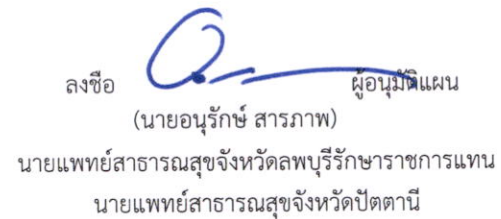 ลงชือ ผู้อนุมัติแผน
(นายอนุรักษ์ สารภาพ)
นายแพทย์สาธารณสุขจังหวัดลพบุรีรักษาราชการแทน
นายแพทย์สาธารณสุขจังหวัดปัตตานี